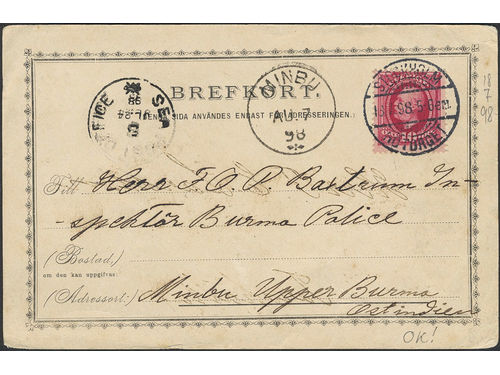 BREFKORT
(PÅ DENNA SIDA ANVÄNDES ENDAST FÖR ADRESSERINGEN.)
MINBU.
AU 17
98
STOCKHOLM
98
10
18
7
98
Till Herr F. O. P. Bastrum In-
spektör Burma Police
(Bostad)
om den kan uppgifvas
(Adressort:) Minbu Upper Burma
Ostindien
OK!